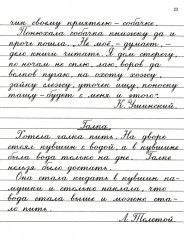 чик своему приятелю – собачке.
Понюхала собачка книжечку да и
прочь пошла. „Не моё, – думает, –
дело книги читать. Я дом стерегу,
по ночам не сплю, лаю, воров да
волков пугаю, на охоту хожу,
зайку слежу, уточек ищу, поноску
тащу – будет с меня и этого".
К. Ушинский.
Галка.
Хотела галка пить. На дворе
стоял кувшин с водой, а в кувшине
была вода только на дне. Галке
нельзя было достать.
Она стала кидать в кувшин ка-
мушки и столько наклала, что
вода стала выше и можно ста-
ло пить.
Л. Толстой.